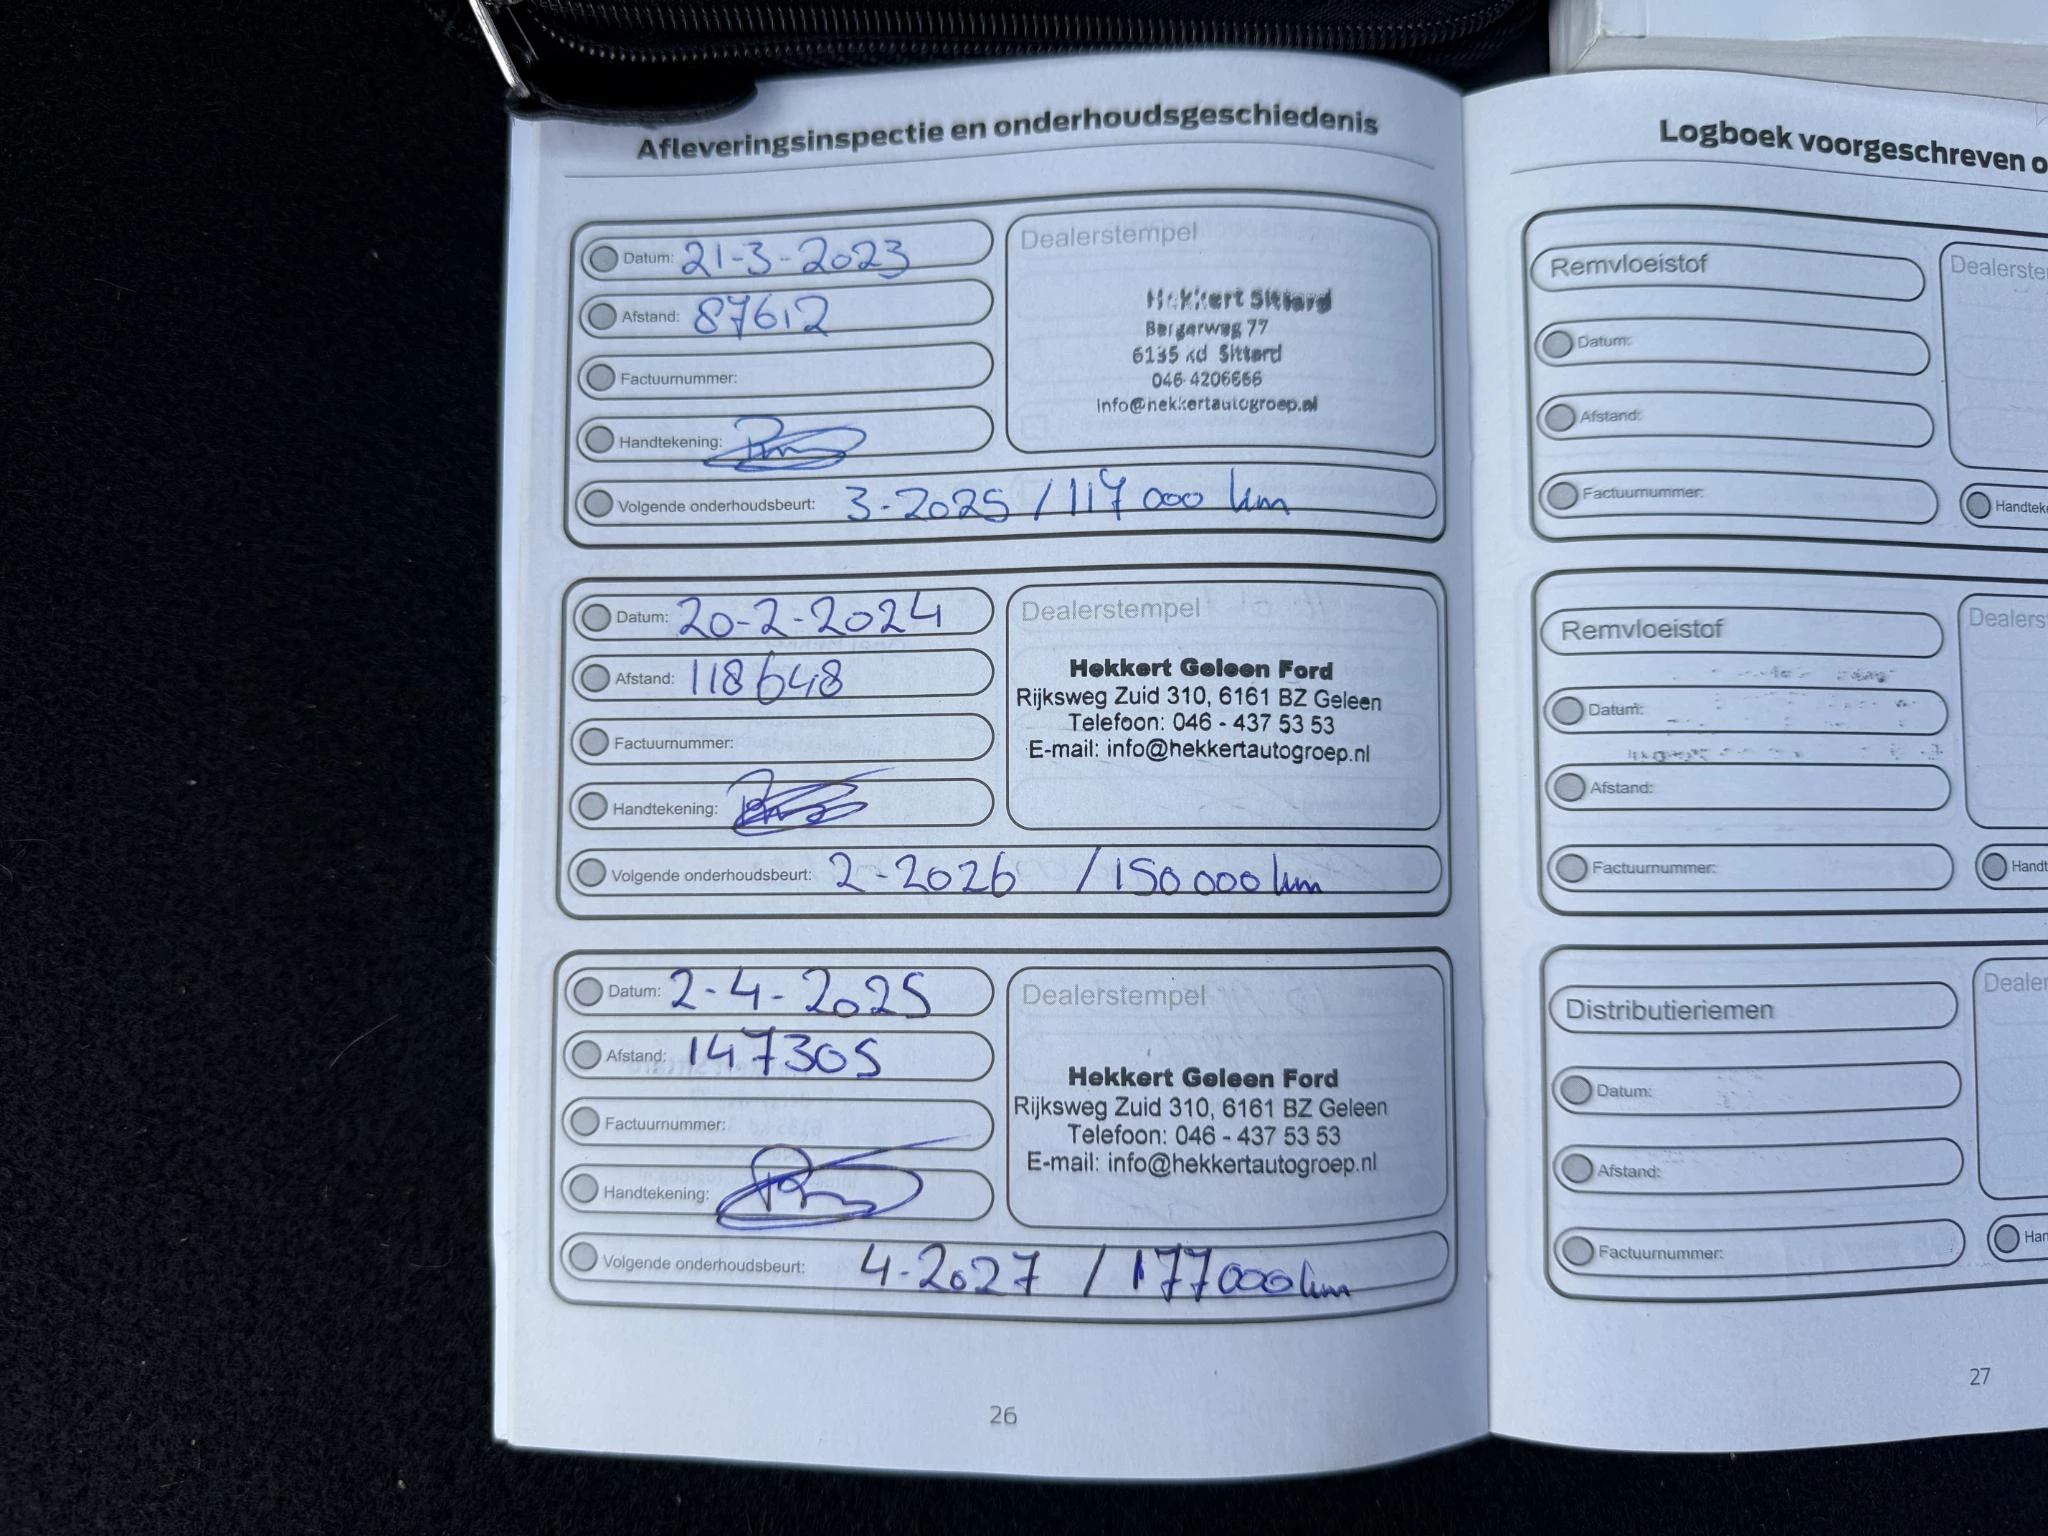 Afleveringsinspectie en onderhoudsgeschiedenis
Datum: 21-3-2023
Afstand: 87612
Factuurnummer:
Handtekening:
Dealerstempel
Hekkert Sittard
Bergerweg 77
6135 kd Sittard
046-4206666
info@hekkertautogroep.nl
Volgende onderhoudsbeurt: 3-2025 / 117 000 km
Datum: 20-2-2024
Afstand: 118648
Factuurnummer:
Handtekening:
Dealerstempel
Hekkert Geleen Ford
Rijksweg Zuid 310, 6161 BZ Geleen
Telefoon: 046 - 437 53 53
E-mail: info@hekkertautogroep.nl
Volgende onderhoudsbeurt: 2-2026 / 150 000 km
Datum: 2-4-2025
Afstand: 147305
Factuurnummer:
Handtekening:
Dealerstempel
Hekkert Geleen Ford
Rijksweg Zuid 310, 6161 BZ Geleen
Telefoon: 046 - 437 53 53
E-mail: info@hekkertautogroep.nl
Volgende onderhoudsbeurt: 4-2027 / 177 000 km
26
Logboek voorgeschreven o
Remvloeistof
Dealerste
Datum:
Afstand:
Factuurnummer:
Handtek
Remvloeistof
Dealers
Datum:
Afstand:
Factuurnummer:
Handt
Distributieriemen
Dealer
Datum:
Afstand:
Factuurnummer:
Han
27